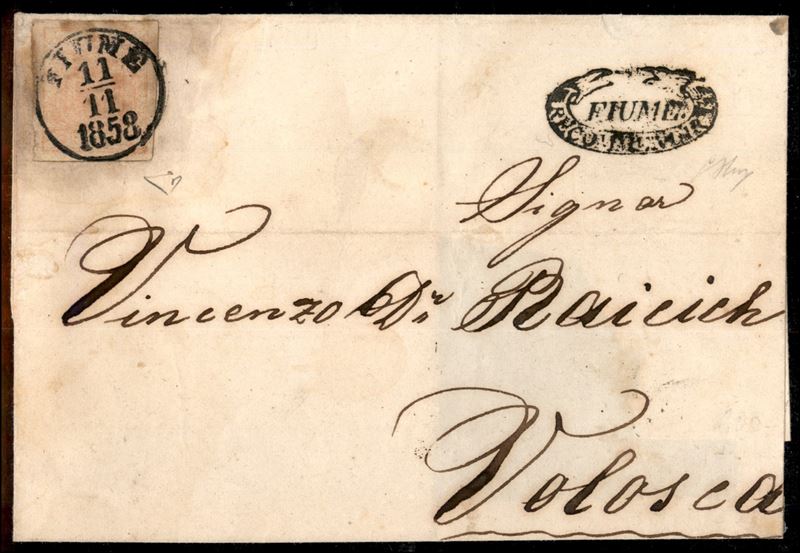 FIUME
11
11
1858
FIUME.
RECOMMANDIRT
Signor
Vincenzo Dr Raicich
Volosca